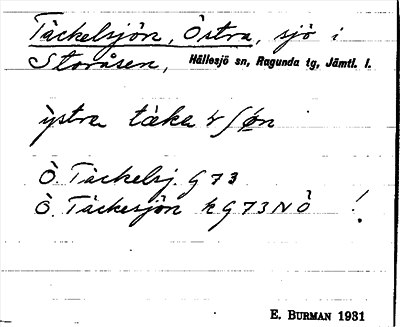 Täckelsjön, Östra, sjö i
Storåsen, Hällesjö sn, Ragunda tg, Jämtl. l.
ỳstra tæka
Ö. Täckelsj. G 73
Ö. Täckesjön kG73NÖ !
E. BURMAN 1931